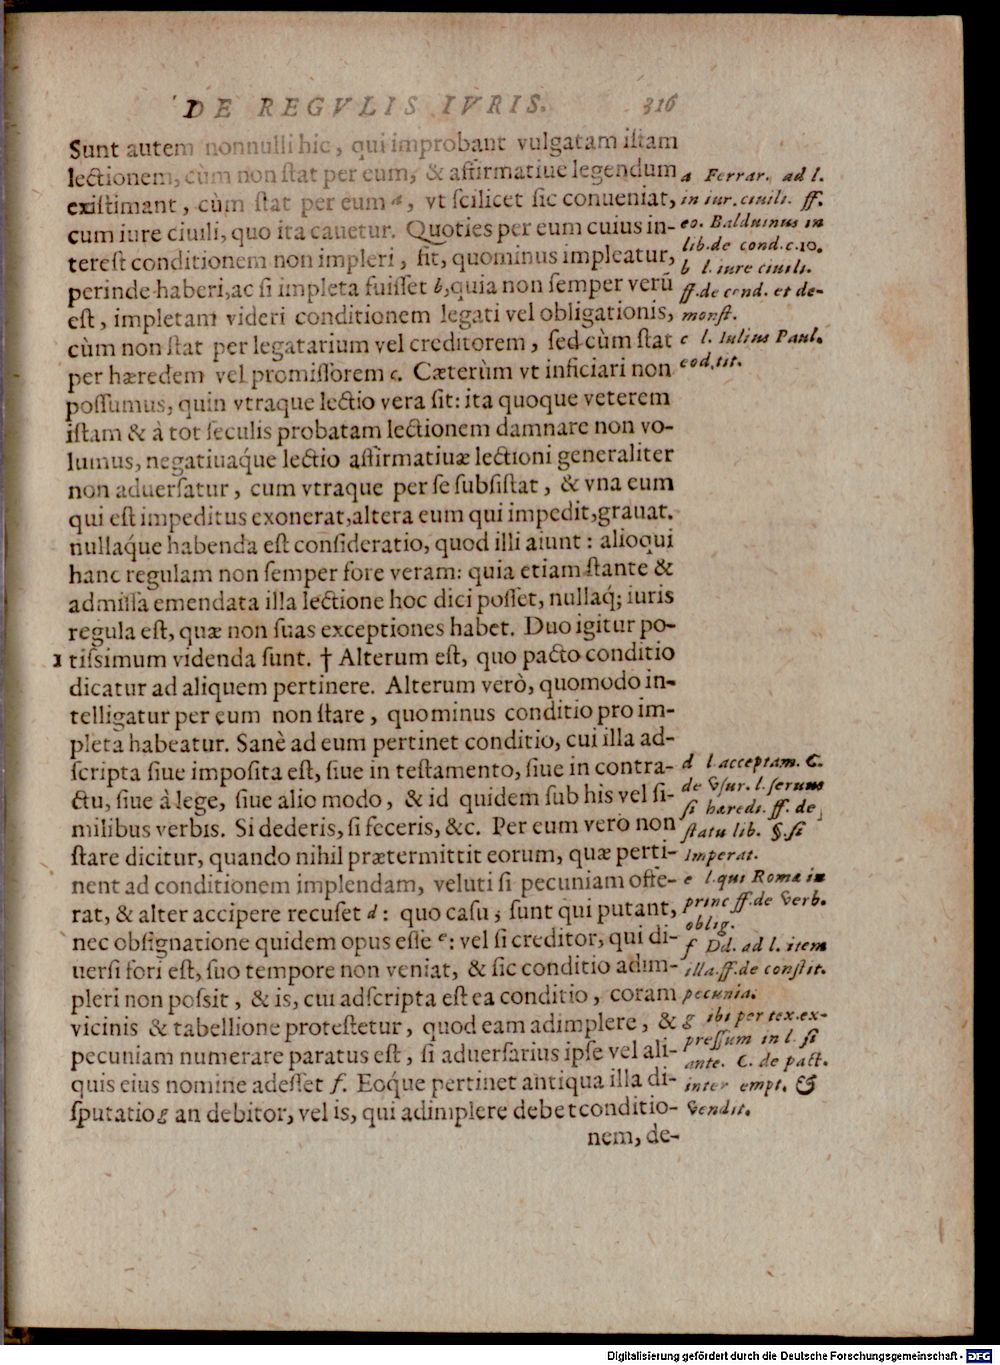 DE REGVLIS IVRIS. 316
Sunt autem nonnulli hic, qui improbant vulgatam iſtam
lectionem, cùm non ſtat per eum, & affirmatiue legendum
exiſtimant, cùm ſtat per eum a, vt ſcilicet ſic conueniat,
cum iure ciuili, quo ita cauetur. Quoties per eum cuius in-
tereſt conditionem non impleri, ſit, quominus impleatur,
perinde haberi, ac ſi impleta fuiſſet b, quia non ſemper verũ
eſt, impletam videri conditionem legati vel obligationis,
cùm non ſtat per legatarium vel creditorem, ſed cùm ſtat
per hæredem vel promiſſorem c. Cæterùm vt inficiari non
poſſumus, quin vtraque lectio vera ſit: ita quoque veterem
iſtam & à tot ſeculis probatam lectionem damnare non vo-
lumus, negatiuaque lectio affirmatiuæ lectioni generaliter
non aduerſatur, cum vtraque per ſe ſubſiſtat, & vna eum
qui eſt impeditus exonerat, altera eum qui impedit, grauat.
nullaque habenda eſt conſideratio, quod illi aiunt: alioqui
hanc regulam non ſemper fore veram: quia etiam ſtante &
admiſſa emendata illa lectione hoc dici poſſet, nullaq; iuris
regula eſt, quæ non ſuas exceptiones habet. Duo igitur po-
1 tiſsimum videnda ſunt. † Alterum eſt, quo pacto conditio
dicatur ad aliquem pertinere. Alterum verò, quomodo in-
telligatur per eum non ſtare, quominus conditio pro im-
pleta habeatur. Sanè ad eum pertinet conditio, cui illa ad-
ſcripta ſiue impoſita eſt, ſiue in teſtamento, ſiue in contra-
ctu, ſiue à lege, ſiue alio modo, & id quidem ſub his vel ſi-
milibus verbis. Si dederis, ſi feceris, &c. Per eum vero non
ſtare dicitur, quando nihil prætermittit eorum, quæ perti-
nent ad conditionem implendam, veluti ſi pecuniam offe-
rat, & alter accipere recuſet d: quo caſu, ſunt qui putant,
nec obſignatione quidem opus eſſe e: vel ſi creditor, qui di-
uerſi fori eſt, ſuo tempore non veniat, & ſic conditio adim-
pleri non poſsit, & is, cui adſcripta eſt ea conditio, coram
vicinis & tabellione proteſtetur, quod eam adimplere, &
pecuniam numerare paratus eſt, ſi aduerſarius ipſe vel ali-
quis eius nomine adeſſet f. Eoque pertinet antiqua illa di-
ſputatio g an debitor, vel is, qui adimplere debet conditio-
nem, de-
a Ferrar. ad l.
in iur. ciuili. ff.
eo. Balduinus in
lib. de cond. c. 10.
b l. iure ciuili.
ff. de cond. et de-
monſt.
c l. Iulius Paul.
eod. tit.
d l. acceptam. C.
de vſur. l. ſeruus
ſi hæredi. ff. de
ſtatu lib. §. ſi
Imperat.
e l. qui Romæ in
princ ff. de verb.
oblig.
f Dd. ad l. item
illa. ff. de conſtit.
pecunia.
g ibi per tex. ex-
preſſum in l. ſi
ante. C. de pact.
inter empt. &
vendit.
Digitalisierung gefördert durch die Deutsche Forschungsgemeinschaft - DFG